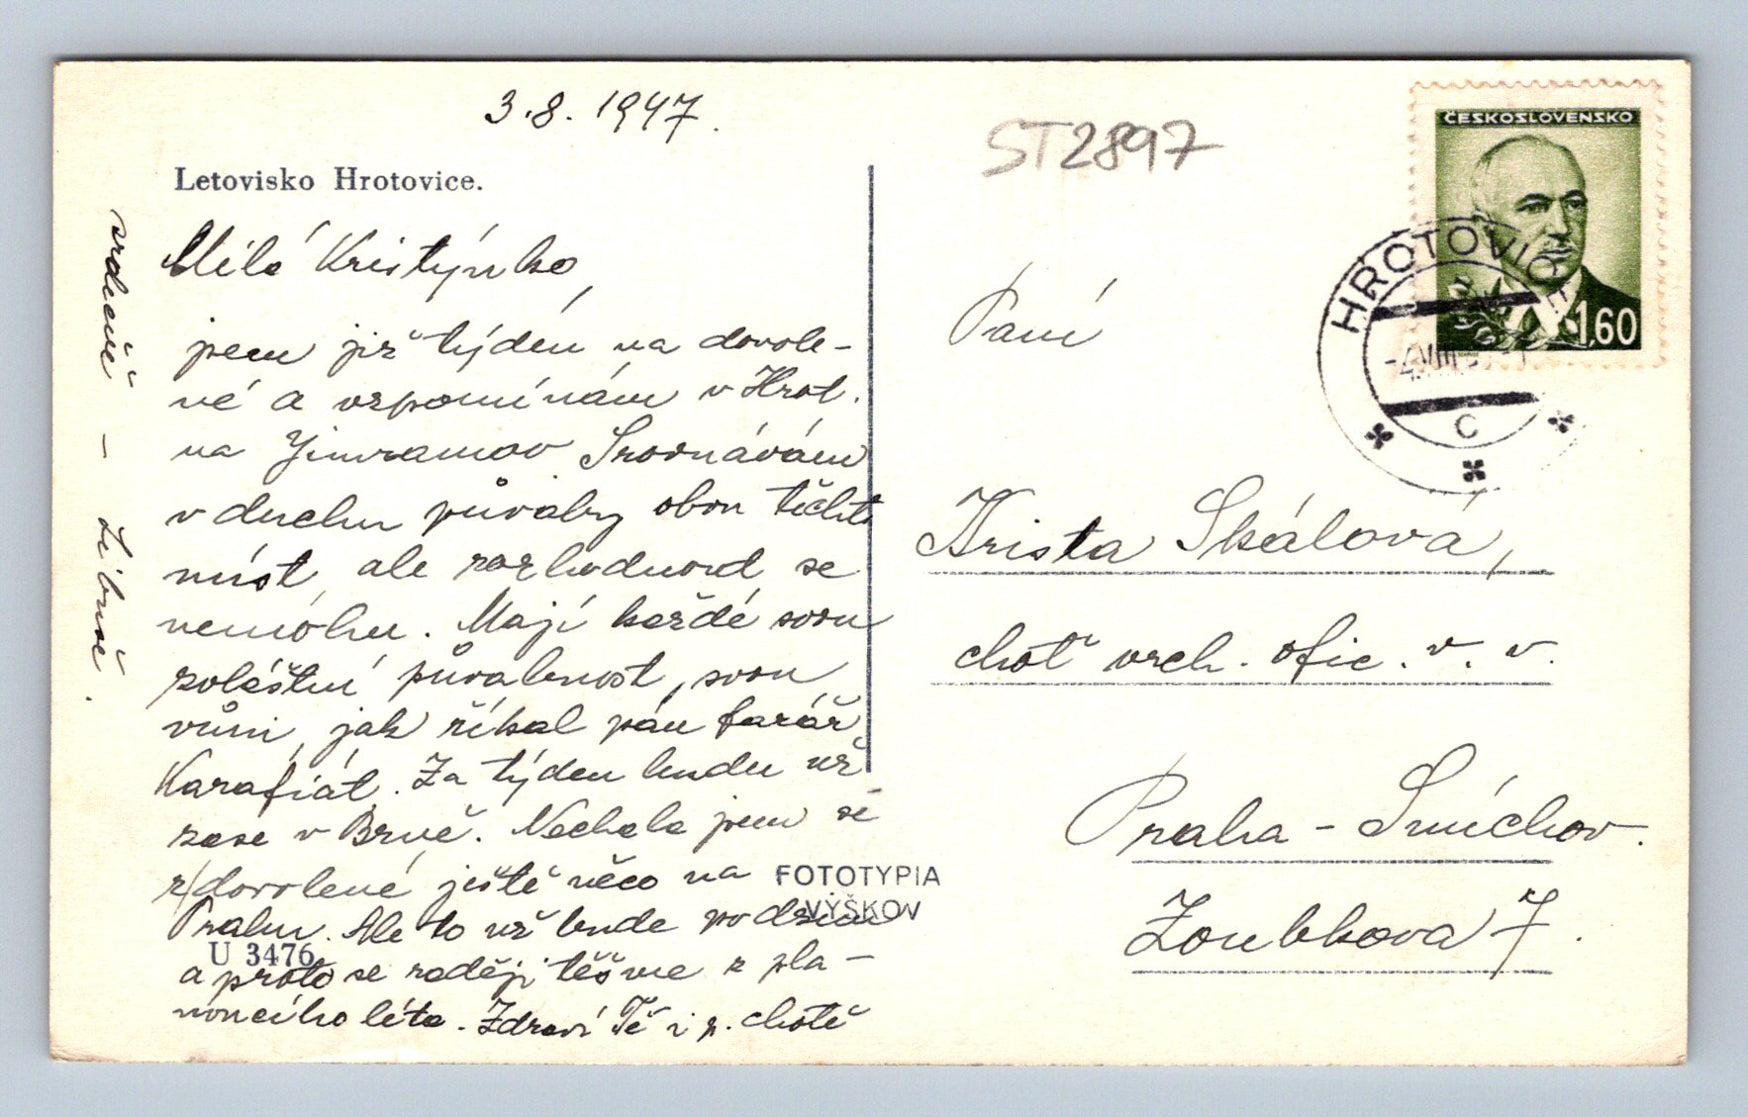 3.8. 1947.
Letovisko Hrotovice.
Milá Kristýnko,
jsem již týden na dovole-
né a vzpomínám v Hrot.
na Jimramov. Srovnávám
v duchu půvaby obou těchto
míst, ale rozhodnout se
nemohu. Mají každé svou
zvláštní půvabnost, svou
vůni, jak říkal pan farář
Karafiát. Za týden budu už
zase v Brně. Nechala jsem si
z dovolené ještě něco na
Prahu. Ale to už bude podzim
a proto se raději těšme z pla-
noucího léta. Zdraví Tě i p. chotě
srdečně - Libuše.
U 3476
FOTOTYPIA
VYŠKOV
ST2897
ČESKOSLOVENSKO
1,60
HROTOVICE
-4.VIII.
C
Paní
Krista Skálová,
choť vrch. ofic. v. v.
Praha - Smíchov.
Zoubkova 7.